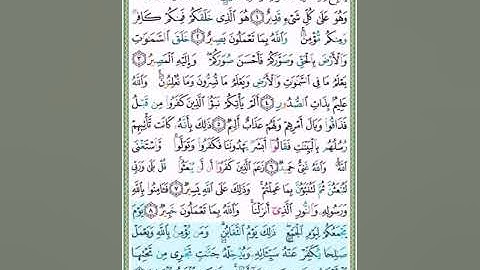 وَهُوَ عَلَىٰ كُلِّ شَىْءٍ قَدِيرٌ ۝١ هُوَ ٱلَّذِى خَلَقَكُمْ فَمِنكُمْ كَافِرٌ
وَمِنكُم مُّؤْمِنٌ ۚ وَٱللَّهُ بِمَا تَعْمَلُونَ بَصِيرٌ ۝٢ خَلَقَ ٱلسَّمَـٰوَٰتِ
وَٱلْأَرْضَ بِٱلْحَقِّ وَصَوَّرَكُمْ فَأَحْسَنَ صُوَرَكُمْ ۖ وَإِلَيْهِ ٱلْمَصِيرُ ۝٣
يَعْلَمُ مَا فِى ٱلسَّمَـٰوَٰتِ وَٱلْأَرْضِ وَيَعْلَمُ مَا تُسِرُّونَ وَمَا تُعْلِنُونَ ۚ وَٱللَّهُ
عَلِيمٌۢ بِذَاتِ ٱلصُّدُورِ ۝٤ أَلَمْ يَأْتِكُمْ نَبَؤُا۟ ٱلَّذِينَ كَفَرُوا۟ مِن قَبْلُ
فَذَاقُوا۟ وَبَالَ أَمْرِهِمْ وَلَهُمْ عَذَابٌ أَلِيمٌ ۝٥ ذَٰلِكَ بِأَنَّهُۥ كَانَت تَّأْتِيهِمْ
رُسُلُهُم بِٱلْبَيِّنَـٰتِ فَقَالُوٓا۟ أَبَشَرٌ يَهْدُونَنَا فَكَفَرُوا۟ وَتَوَلَّوا۟ ۚ وَّٱسْتَغْنَى
ٱللَّهُ ۚ وَٱللَّهُ غَنِىٌّ حَمِيدٌ ۝٦ زَعَمَ ٱلَّذِينَ كَفَرُوٓا۟ أَن لَّن يُبْعَثُوا۟ ۚ قُلْ بَلَىٰ وَرَبِّى
لَتُبْعَثُنَّ ثُمَّ لَتُنَبَّؤُنَّ بِمَا عَمِلْتُمْ ۚ وَذَٰلِكَ عَلَى ٱللَّهِ يَسِيرٌ ۝٧ فَـَٔامِنُوا۟ بِٱللَّهِ
وَرَسُولِهِۦ وَٱلنُّورِ ٱلَّذِىٓ أَنزَلْنَا ۚ وَٱللَّهُ بِمَا تَعْمَلُونَ خَبِيرٌ ۝٨ يَوْمَ
يَجْمَعُكُمْ لِيَوْمِ ٱلْجَمْعِ ۖ ذَٰلِكَ يَوْمُ ٱلتَّغَابُنِ ۗ وَمَن يُؤْمِنۢ بِٱللَّهِ وَيَعْمَلْ
صَـٰلِحًا يُكَفِّرْ عَنْهُ سَيِّـَٔاتِهِۦ وَيُدْخِلْهُ جَنَّـٰتٍ تَجْرِى مِن تَحْتِهَا